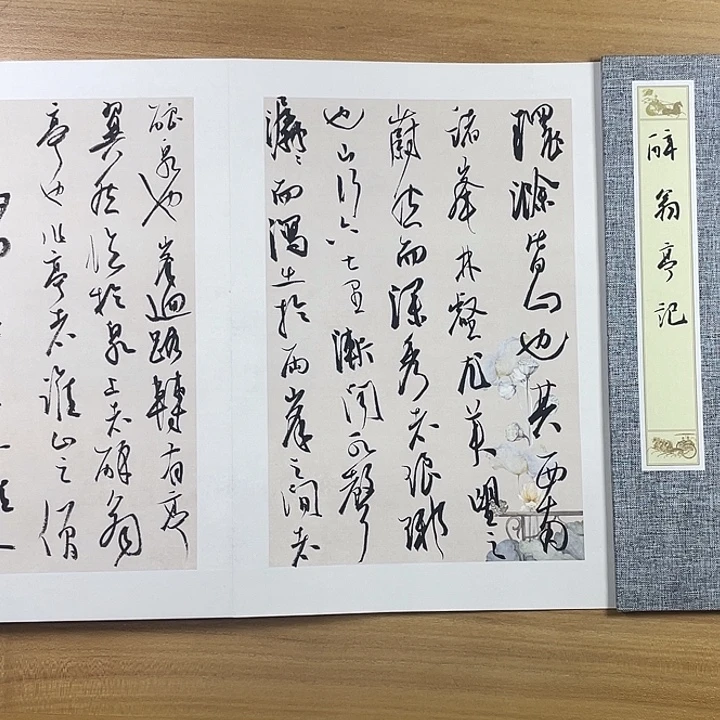 醉翁亭记
環滁皆山也其西南
諸峯林壑尤美望之
蔚然而深秀者琅琊
也山行六七里漸聞水聲
潺潺而瀉出於兩峯之間者
釀泉也峯迴路轉有亭
翼然臨於泉上者醉翁
亭也作亭者誰山之僧